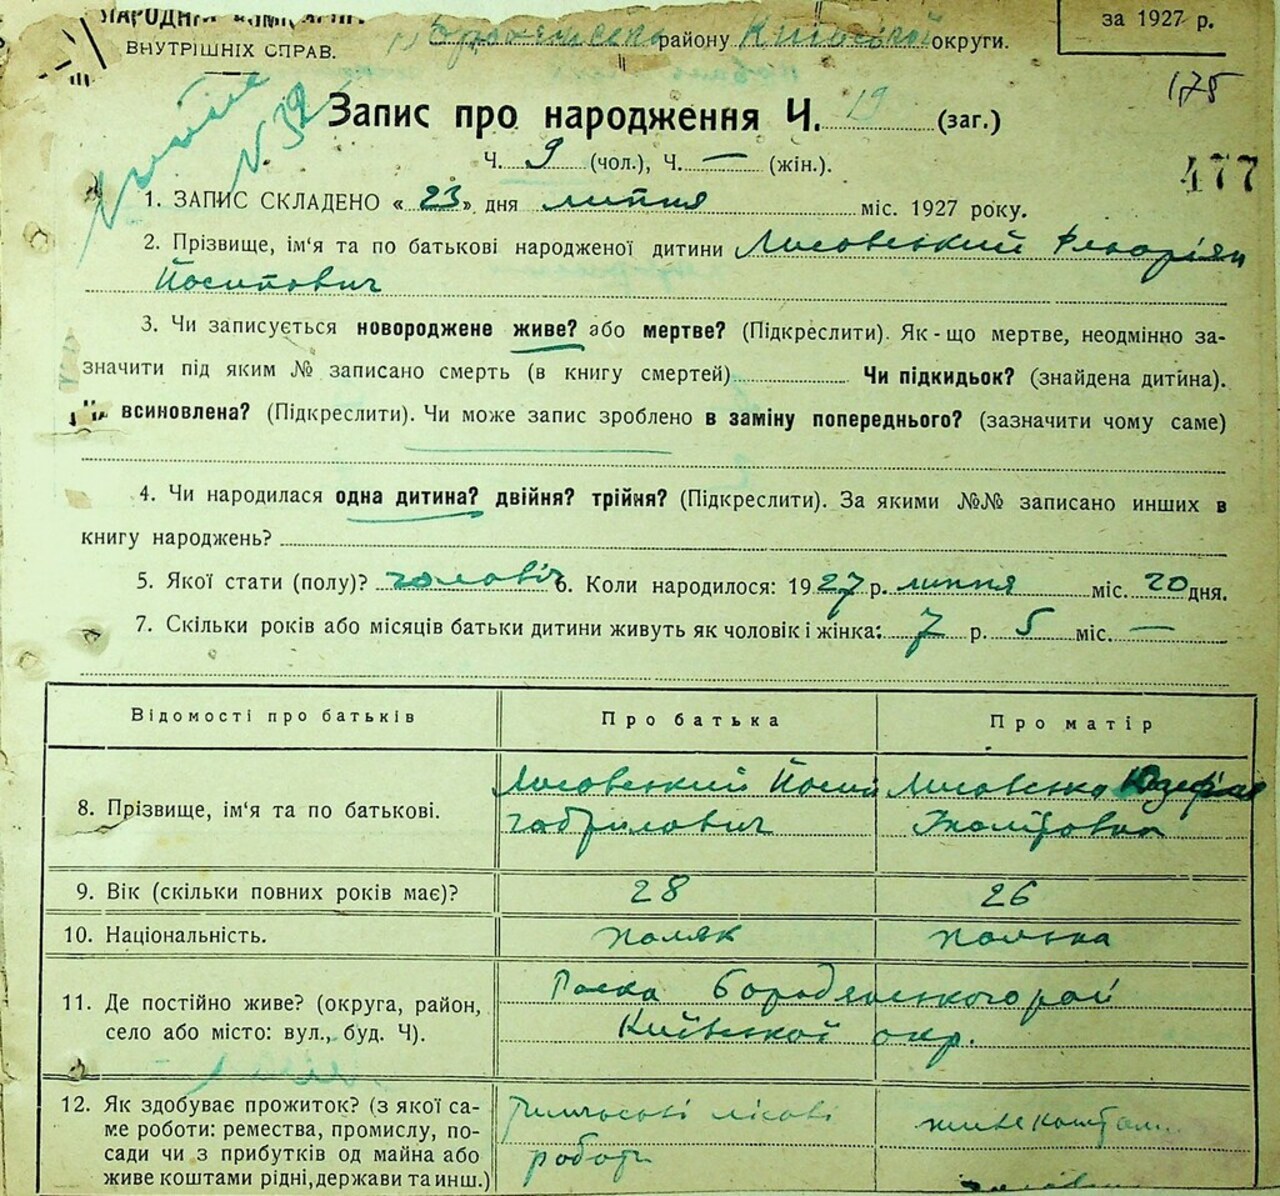 НАРОДНІЙ КОМІСАРІЯТ
ВНУТРІШНІХ СПРАВ.
району Київської округи.
за 1927 р.
175
№ 39
Запис про народження Ч. 19 (заг.)
Ч. 9 (чол.), Ч. — (жін.).
477
1. ЗАПИС СКЛАДЕНО « 23 », дня липня міс. 1927 року.
2. Прізвище, ім'я та по батькові народженої дитини Лисовський Флоріян
Йосипович
3. Чи записується новороджене живе? або мертве? (Підкреслити). Як-що мертве, неодмінно за-
значити під яким № записано смерть (в книгу смертей) Чи підкидьок? (знайдена дитина).
Чи всиновлена? (Підкреслити). Чи може запис зроблено в заміну попереднього? (зазначити чому саме)
4. Чи народилася одна дитина? двійня? трійня? (Підкреслити). За якими №№ записано инших в
книгу народжень?
5. Якої стати (полу)? чоловіч 6. Коли народилося: 1927 р. липня міс. 20 дня.
7. Скільки років або місяців батьки дитини живуть як чоловік і жінка: 7 р. 5 міс. —
Відомості про батьків Про батька Про матір
8. Прізвище, ім'я та по батькові. Лисовський Йосип Габрилович Лисовська Юзефія
9. Вік (скільки повних років має)? 28 26
10. Національність. поляк полька
11. Де постійно живе? (округа, район,
село або місто: вул., буд. Ч).
Бородянського рай
Київської окр.
12. Як здобуває прожиток? (з якої са-
ме роботи: ремества, промислу, по-
сади чи з прибутків од майна або
живе коштами рідні, держави та инш.)
тимчасові лісові
роботи
живе коштам